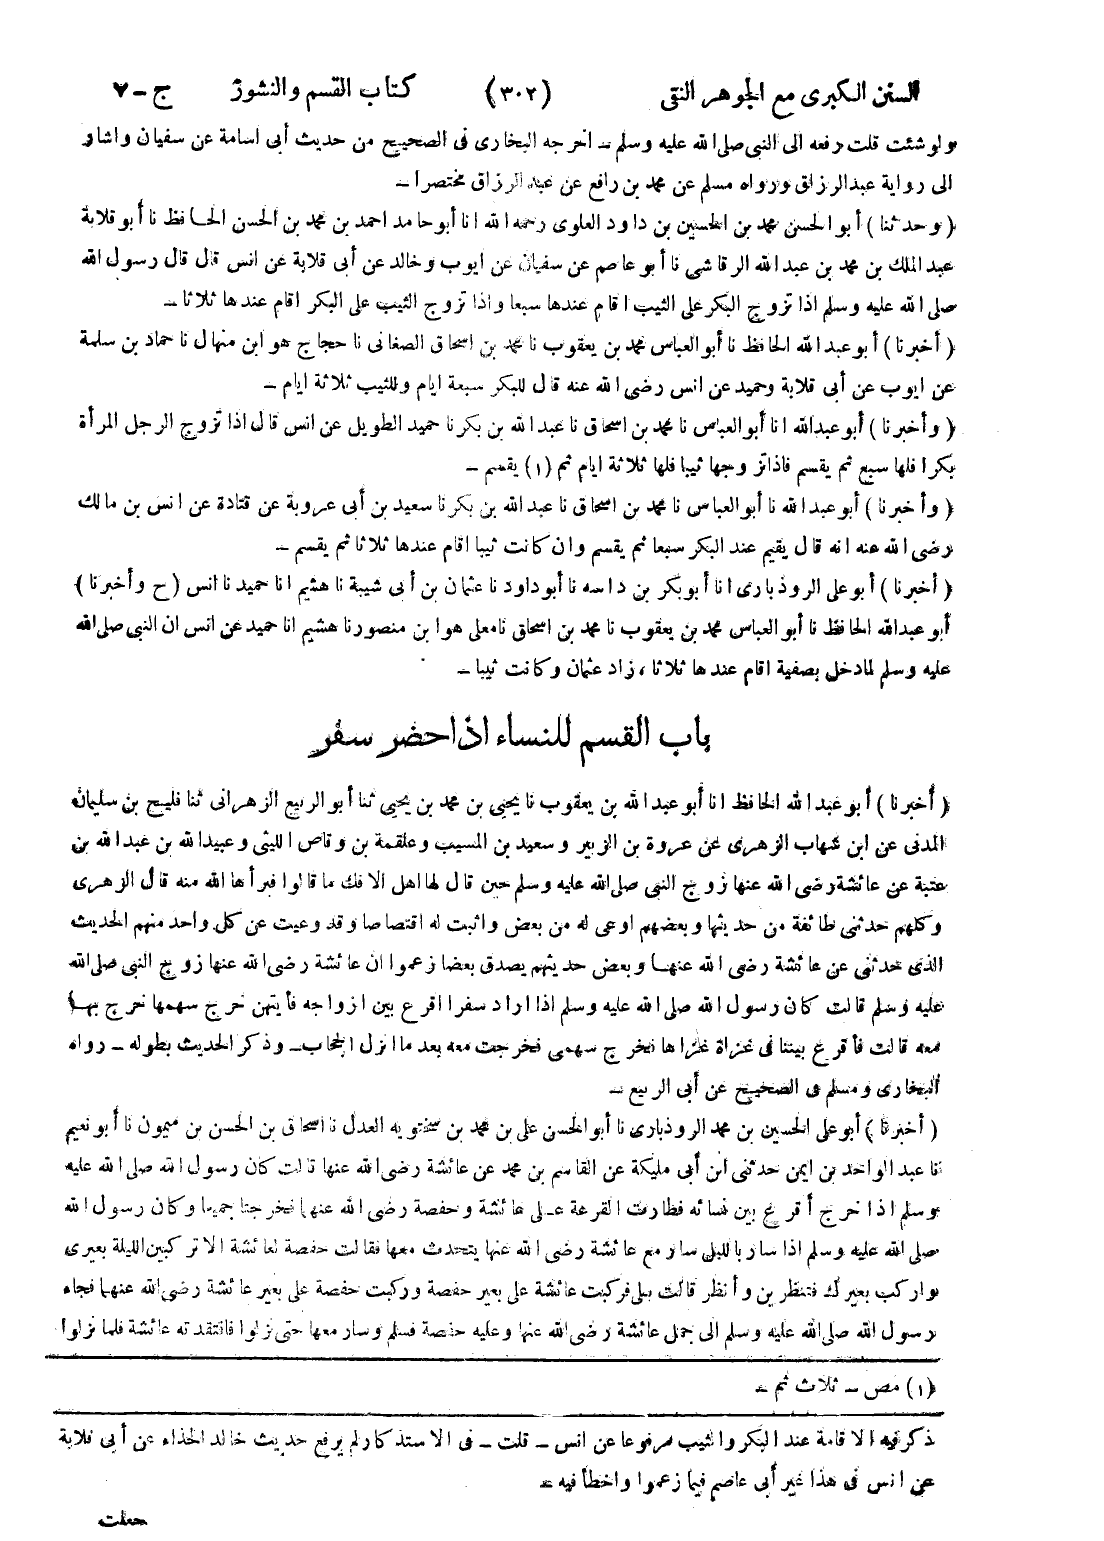 السنن الكبرى مع الجوهر النقى (٣٠٢) كتاب القسم والنشوز ج-٧
ولو شئت قلت رفعه الى النبى صلى الله عليه وسلم - اخرجه البخارى فى الصحيح من حديث أبى اسامة عن سفيان واشار
الى رواية عبد الرزاق ورواه مسلم عن محمد بن رافع عن عبد الرزاق مختصرا -
(وحدثنا) أبو الحسن محمد بن الحسين بن داود العلوى رحمه الله انا أبو حامد احمد بن محمد بن الحسن الحافظ نا أبو قلابة
عبد الملك بن محمد بن عبد الله الرقاشى نا أبو عاصم عن سفيان عن ايوب وخالد عن أبى قلابة عن انس قال قال رسول الله
صلى الله عليه وسلم اذا تزوج البكر على الثيب اقام عندها سبعا واذا تزوج الثيب على البكر اقام عندها ثلاثا -
(أخبرنا) أبو عبد الله الحافظ نا أبو العباس محمد بن يعقوب نا محمد بن اسحاق الصغانى نا حجاج هو ابن منهال نا حماد بن سلمة
عن ايوب عن أبى قلابة وحميد عن انس رضى الله عنه قال للبكر سبعة ايام وللثيب ثلاثة ايام -
(وأخبرنا) أبو عبد الله انا أبو العباس نا محمد بن اسحاق نا عبد الله بن بكر نا حميد الطويل عن انس قال اذا تزوج الرجل المرأة
بكرا فلها سبع ثم يقسم فاذا تزوجها ثيبا فلها ثلاثة ايام ثم (١) يقسم -
(وأخبرنا) أبو عبد الله نا أبو العباس نا محمد بن اسحاق نا عبد الله بن بكر نا سعيد بن أبى عروبة عن قتادة عن انس بن مالك
رضى الله عنه انه قال يقيم عند البكر سبعا ثم يقسم وان كانت ثيبا اقام عندها ثلاثا ثم يقسم -
(أخبرنا) أبو على الروذبارى انا أبو بكر بن داسه نا أبو داود نا عثمان بن أبى شيبة نا هشيم انا حميد نا انس (ح وأخبرنا)
أبو عبد الله الحافظ نا أبو العباس محمد بن يعقوب نا محمد بن اسحاق نا معلى هو ابن منصور نا هشيم انا حميد عن انس ان النبى صلى الله
عليه وسلم لما دخل بصفية اقام عندها ثلاثا ، زاد عثمان وكانت ثيبا -
باب القسم للنساء اذا حضر سفر
(أخبرنا) أبو عبد الله الحافظ انا أبو عبد الله بن يعقوب نا يحيى بن محمد بن يحيى ثنا أبو الربيع الزهرانى ثنا فليح بن سليمان
المدنى عن ابن شهاب الزهرى عن عروة بن الزبير وسعيد بن المسيب وعلقمة بن وقاص الليثى وعبيد الله بن عبد الله بن
عتبة عن عائشة رضى الله عنها زوج النبى صلى الله عليه وسلم حين قال لها اهل الافك ما قالوا فبرأها الله منه قال الزهرى
وكلهم حدثنى طائفة من حديثها وبعضهم اوعى له من بعض واثبت له اقتصاصا وقد وعيت عن كل واحد منهم الحديث
الذى حدثنى عن عائشة رضى الله عنها وبعض حديثهم يصدق بعضا زعموا ان عائشة رضى الله عنها زوج النبى صلى الله
عليه وسلم قالت كان رسول الله صلى الله عليه وسلم اذا اراد سفرا اقرع بين ازواجه فأيتهن خرج سهمها خرج بها
معه قالت فأقرع بيننا فى غزاة غزاها فخرج سهمى فخرجت معه بعد ما انزل الحجاب - وذكر الحديث بطوله - رواه
البخارى ومسلم فى الصحيح عن أبى الربيع -
(أخبرنا) أبو على الحسين بن محمد الروذبارى نا أبو الحسن على بن محمد بن سختويه العدل نا اسحاق بن الحسن بن ميمون نا أبو نعيم
نا عبد الواحد بن ايمن حدثنى ابن أبى مليكة عن القاسم بن محمد عن عائشة رضى الله عنها قالت كان رسول الله صلى الله عليه
وسلم اذا خرج أقرع بين نسائه فطارت القرعة على عائشة وحفصة رضى الله عنهما فخرجتا جميعا وكان رسول الله
صلى الله عليه وسلم اذا سار بالليل سار مع عائشة رضى الله عنها يتحدث معها فقالت حفصة لعائشة الا تركبين الليلة بعيرى
واركب بعيرك فتنظرين وأنظر قالت بلى فركبت عائشة على بعير حفصة وركبت حفصة على بعير عائشة رضى الله عنهما فجاء
رسول الله صلى الله عليه وسلم الى جمل عائشة رضى الله عنها وعليه حفصة فسلم وسار معها حتى نزلوا فافتقدته عائشة فلما نزلوا
(١) مص - ثلاث ثم -
ذكر فيه الاقامة عند البكر والثيب مرفوعا عن انس - قلت - فى الاستذكار لم يرفع حديث خالد الحذاء عن أبى قلابة
عن انس فى هذا غير أبى عاصم فيما زعموا واخطأ فيه -
جعلت